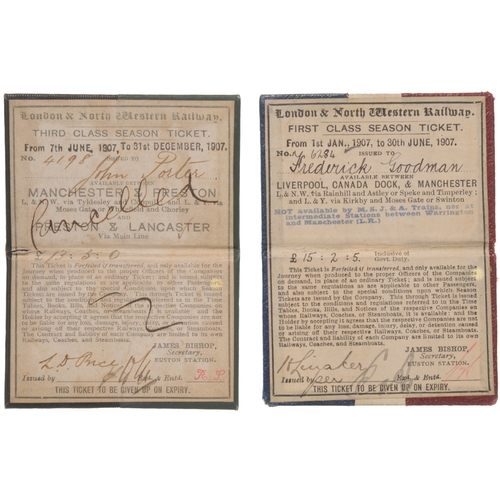 London & North Western Railway.
THIRD CLASS SEASON TICKET.
From 7th JUNE, 1907, To 31st DECEMBER, 1907.
No. 4198 ISSUED TO
John Porter
AVAILABLE BETWEEN
MANCHESTER & PRESTON
L. & N.W. via Tyldesley and
Moses Gate and Chorley
AND
PRESTON & LANCASTER
Via Main Line
Cancelled
THIS TICKET is Forfeited if transferred, and only available for the
Journey when produced to the proper Officers of the Companies
on demand, in place of an ordinary Ticket; and is issued subject
to the same regulations as are applicable to other Passengers,
and also subject to the special Conditions upon which Season
Tickets are issued by the Company. This through Ticket is issued
subject to the conditions and regulations referred to in the Time
Tables, Books, Bills, and Notices of the respective Companies
on whose Railways, Coaches, or Steamboats it is available; and the
Holder by accepting it agrees that the respective Companies are not
to be liable for any loss, damage, injury, delay, or detention caused
or arising off their respective Railways, Coaches, or Steamboats.
The Contract and liability of each Company are limited to its own
Railways, Coaches, and Steamboats.
JAMES BISHOP,
Secretary,
EUSTON STATION.
Issued by
Exd. & Entd.
THIS TICKET TO BE GIVEN UP ON EXPIRY.
London & North Western Railway.
FIRST CLASS SEASON TICKET.
From 1st JAN., 1907, to 30th JUNE, 1907.
No. A 6284 ISSUED TO
Frederick Goodman
AVAILABLE BETWEEN
LIVERPOOL, CANADA DOCK, & MANCHESTER
L. & N.W. via Rainhill and Astley or Speke and Timperley;
and L. & Y. via Kirkby and Moses Gate or Swinton
NOT available by M.S.J. & A. Trains, nor at
intermediate Stations between Warrington
and Manchester (L.R.)
£ 15 : 2 : 5. Inclusive of
Govt. Duty.
THIS TICKET is Forfeited if transferred, and only available for the
Journey when produced to the proper Officers of the Companies
on demand, in place of an ordinary Ticket; and is issued subject
to the same regulations as are applicable to other Passengers,
and also subject to the special conditions upon which Season
Tickets are issued by the Company. This through Ticket is issued
subject to the conditions and regulations referred to in the Time
Tables, Books, Bills, and Notices of the respective Companies on
whose Railways, Coaches, or Steamboats, it is available; and the
Holder by accepting it agrees that the respective Companies are not
to be liable for any loss, damage, injury, delay, or detention caused
or arising off their respective Railways, Coaches, or Steamboats.
The Contract and liability of each Company are limited to its own
Railways, Coaches, and Steamboats.
JAMES BISHOP,
Secretary,
EUSTON STATION.
Issued by
per
Exd. & Entd.
THIS TICKET TO BE GIVEN UP ON EXPIRY.